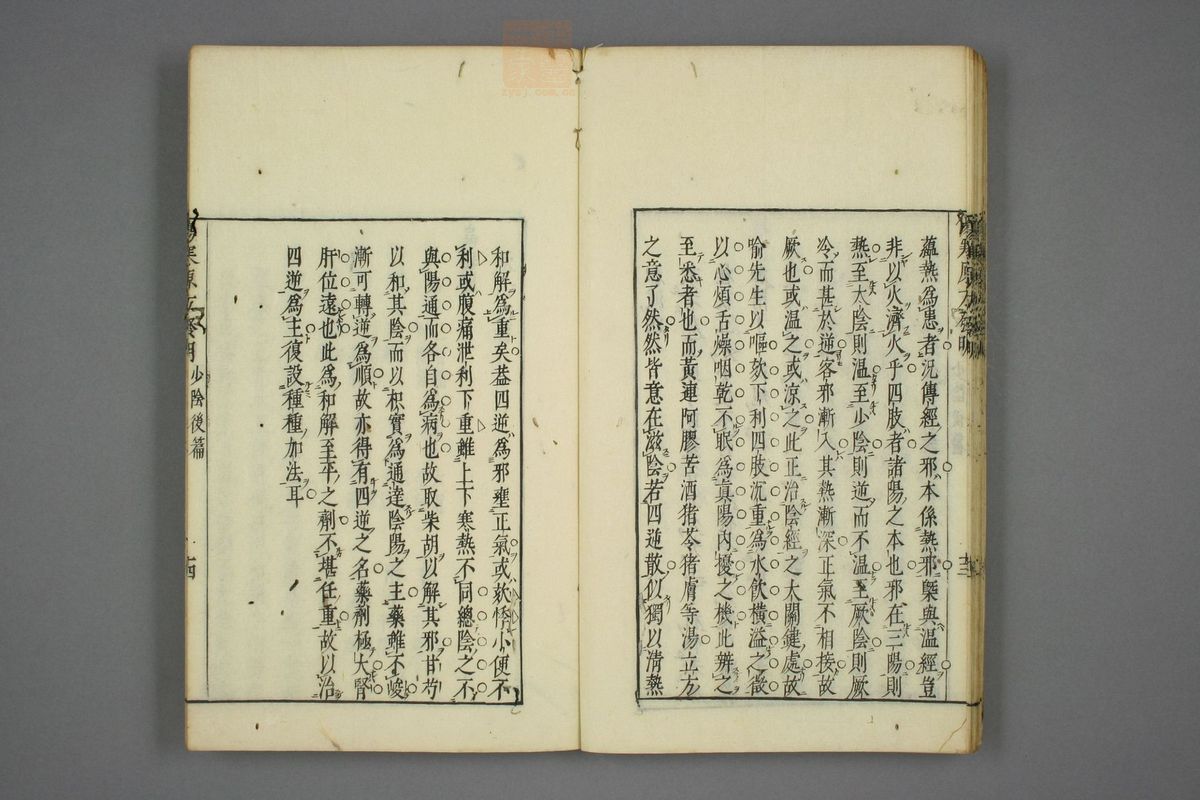 蘊熱爲患者況傳經之邪本係熱邪槩與温經豈
非以火濟火乎四肢者諸陽之本也邪在三陽則
熱至太陰則温至少陰則逆而不温至厥陰則厥
冷而甚於逆客邪漸入其熱漸深正氣不相接故
厥也或温之或涼之此正治陰經之大關鍵處故
喻先生以嘔欬下利四肢沉重爲水飲橫溢之徵
以心煩舌燥咽乾不眠爲眞陽內擾之機此辨之
至悉者也而黃連阿膠苦酒猪苓猪膚等湯立方
之意了然然皆意在滋陰若四逆散似獨以清熱
和解爲重矣葢四逆爲邪壅正氣或欬悸小便不
利或腹痛泄利下重雖上下寒熱不同總陰之不
與陽通而各自爲病也故取柴胡以解其邪甘芍
以和其陰而以枳實爲通達陰陽之主藥雖不峻
漸可轉逆爲順故亦得有四逆之名藥劑極大腎
肝位遠也此爲和解至平之劑不堪任重故以治
四逆爲主復設種種加法耳
少陰後篇
十四
zysj.com.cn